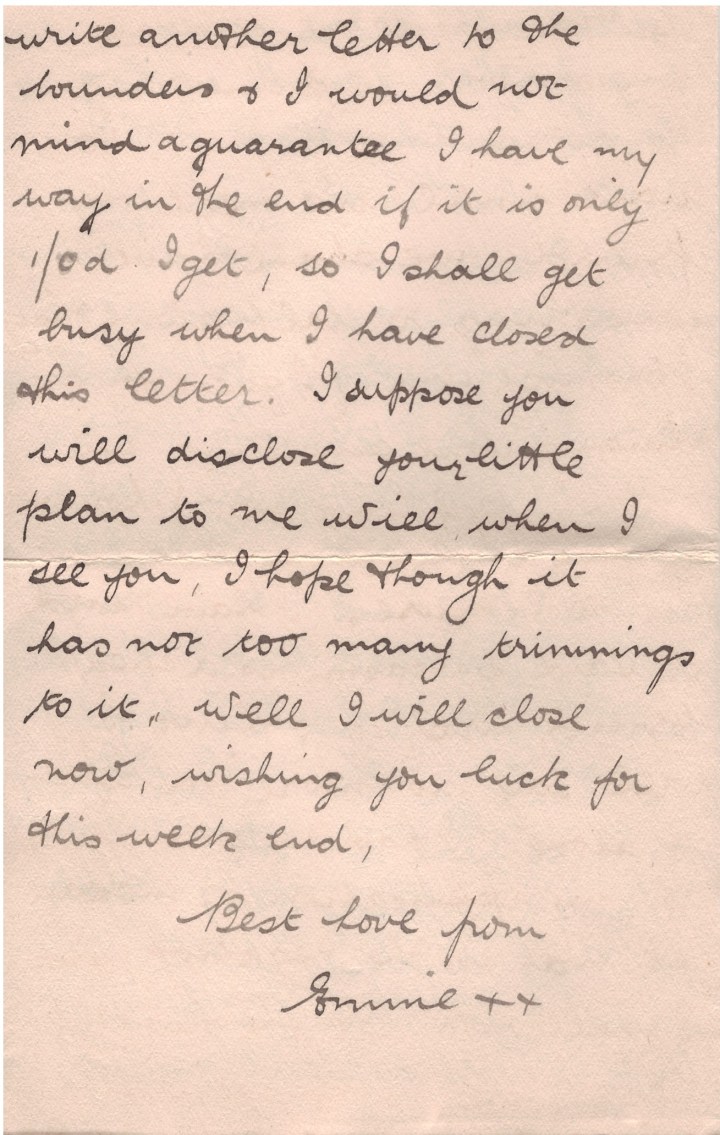 write another letter to the
bounders & I would not
mind a guarantee I have my
way in the end if it is only
1/0d I get, so I shall get
busy when I have closed
this letter. I suppose you
will disclose your little
plan to me Will, when I
see you, I hope though it
has not too many trimmings
to it,, Well I will close
now, wishing you luck for
this week end,
Best love from
Emmie ++